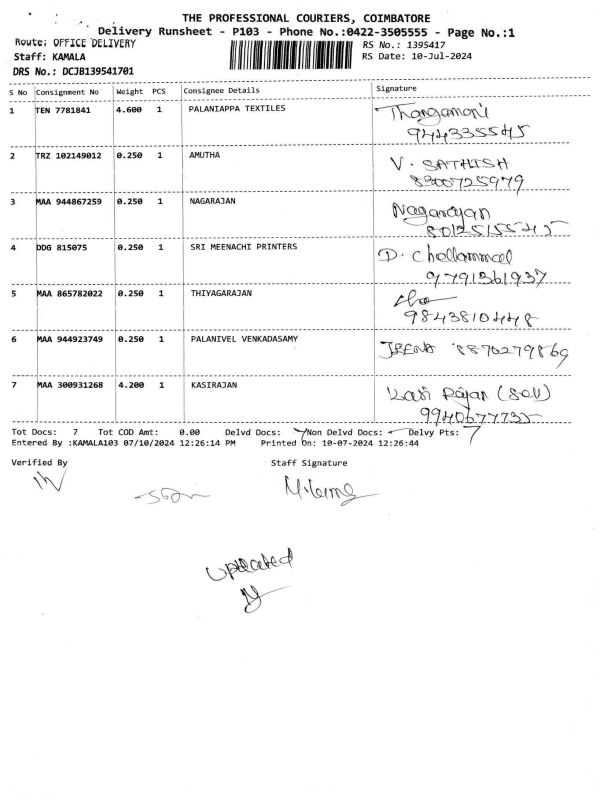 THE PROFESSIONAL COURIERS, COIMBATORE
Delivery Runsheet - P103 - Phone No.:0422-3505555 - Page No.:1
Route: OFFICE DELIVERY RS No.: 1395417
Staff: KAMALA RS Date: 10-Jul-2024
DRS No.: DCJB139541701
S No Consignment No Weight PCS Consignee Details Signature
1 TEN 7781841 4.600 1 PALANIAPPA TEXTILES Thangamani
944335545
2 TRZ 102149012 0.250 1 AMUTHA V. SATHISH
8300725979
3 MAA 944867259 0.250 1 NAGARAJAN Nagarajan
4 DDG 815075 0.250 1 SRI MEENACHI PRINTERS D. Chellammal
9791361937
5 MAA 865782022 0.250 1 THIYAGARAJAN
9843810448
6 MAA 944923749 0.250 1 PALANIVEL VENKADASAMY JEENA 8870279869
7 MAA 300931268 4.200 1 KASIRAJAN Kasi Rajan (Self)
9940677735
Tot Docs: 7 Tot COD Amt: 0.00 Delvd Docs: 7 Non Delvd Docs: - Delvy Pts: 7
Entered By :KAMALA103 07/10/2024 12:26:14 PM Printed On: 10-07-2024 12:26:44
Verified By Staff Signature
updated